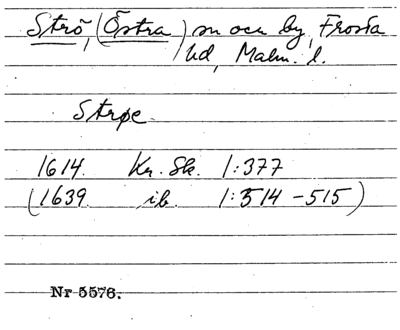 Strö, (Östra) sn och by, Frosta
hd, Malm. l.
Strøe
1614. Kr. Sk. 1:377
(1639. ib. 1:514-515)
Nr 5576.